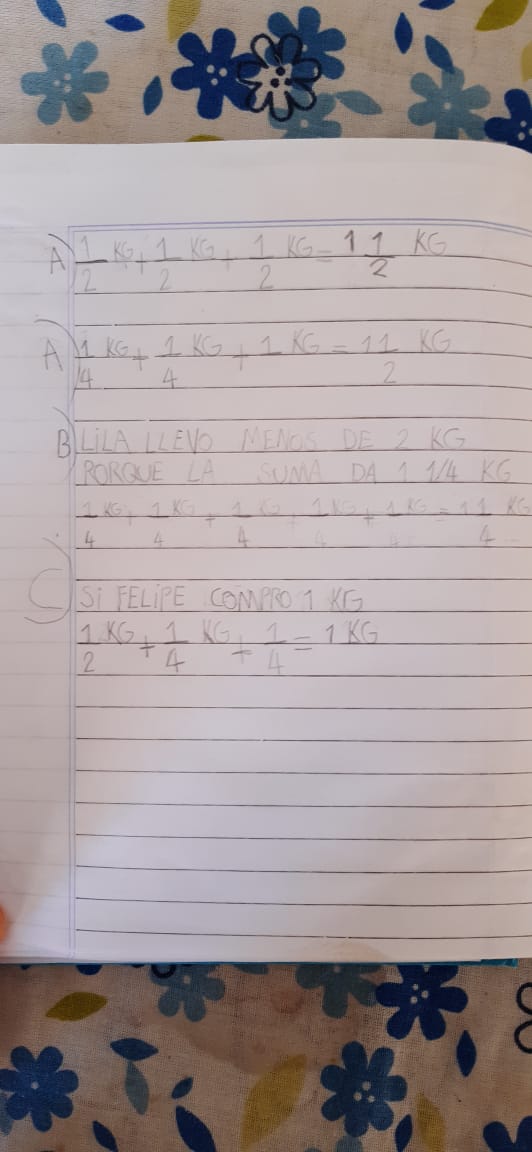 A) 1/2 KG + 1/2 KG + 1/2 KG = 1 1/2 KG
A) 1/4 KG + 1/4 KG + 1 KG = 1 1/2 KG
B) LILA LLEVO MENOS DE 2 KG
PORQUE LA SUMA DA 1 1/4 KG
1/4 KG + 1/4 KG + 1/4 KG + 1/4 KG + 1/4 KG = 1 1/4 KG
C) SI FELIPE COMPRO 1 KG
1/2 KG + 1/4 KG + 1/4 = 1 KG